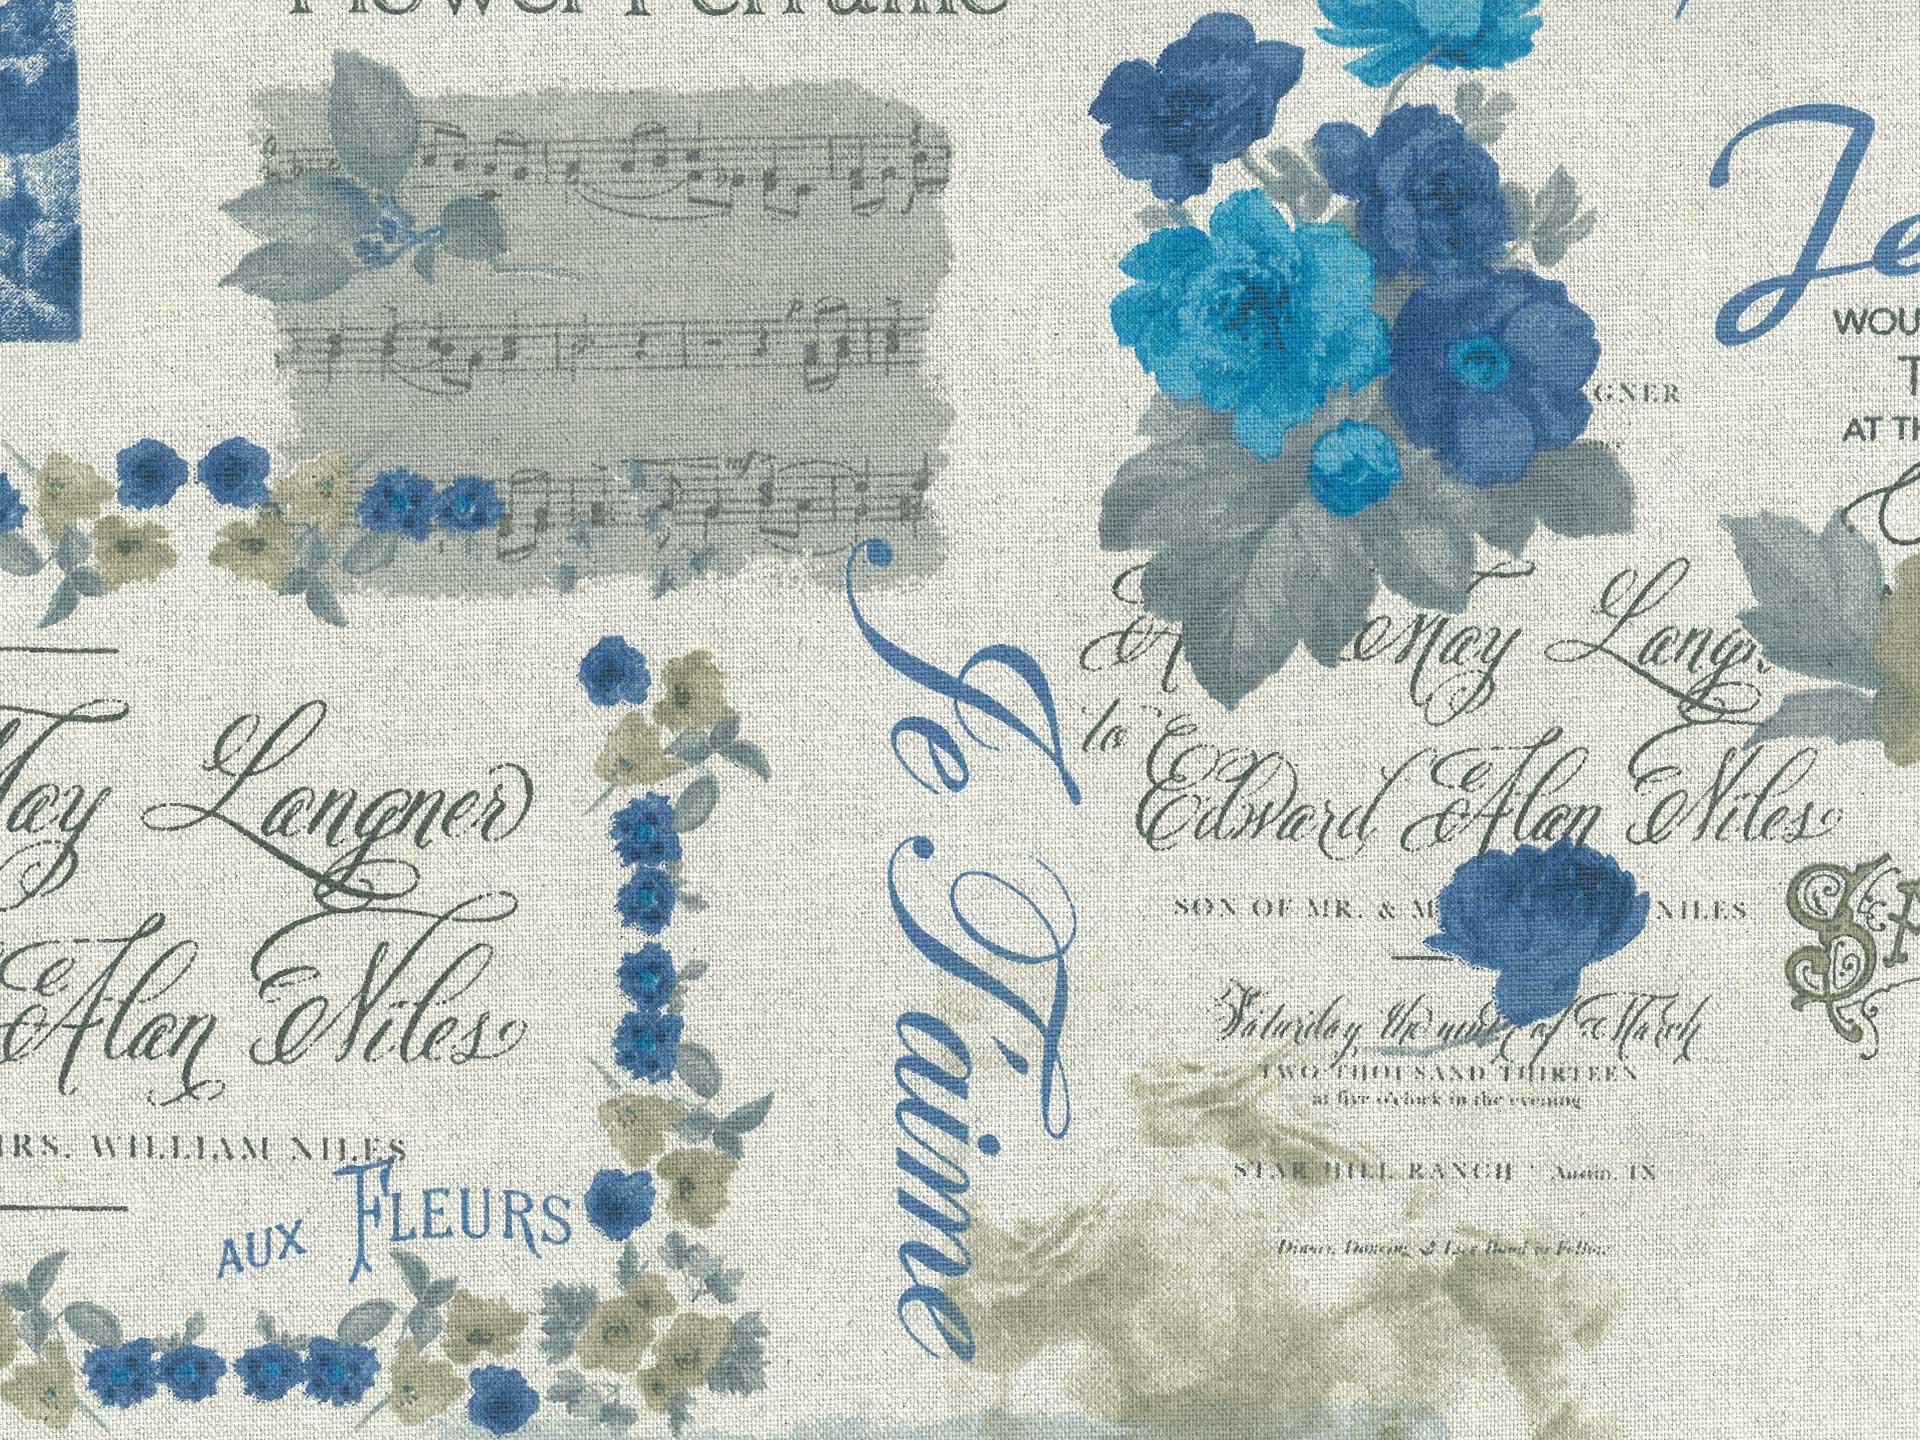 Flower Perfume
Je
WOU
T
AT TH
GNER
May Lang
to
Edward Alan Niles
SON OF MR. & M NILES
Saturday, the of March
TWO THOUSAND THIRTEEN
at five o'clock in the evening
STAR HILL RANCH · Austin, TX
Dinner, Dancing, & Live Band to Follow
Je Taime
May Langner
Alan Niles
MRS. WILLIAM NILES
AUX FLEURS